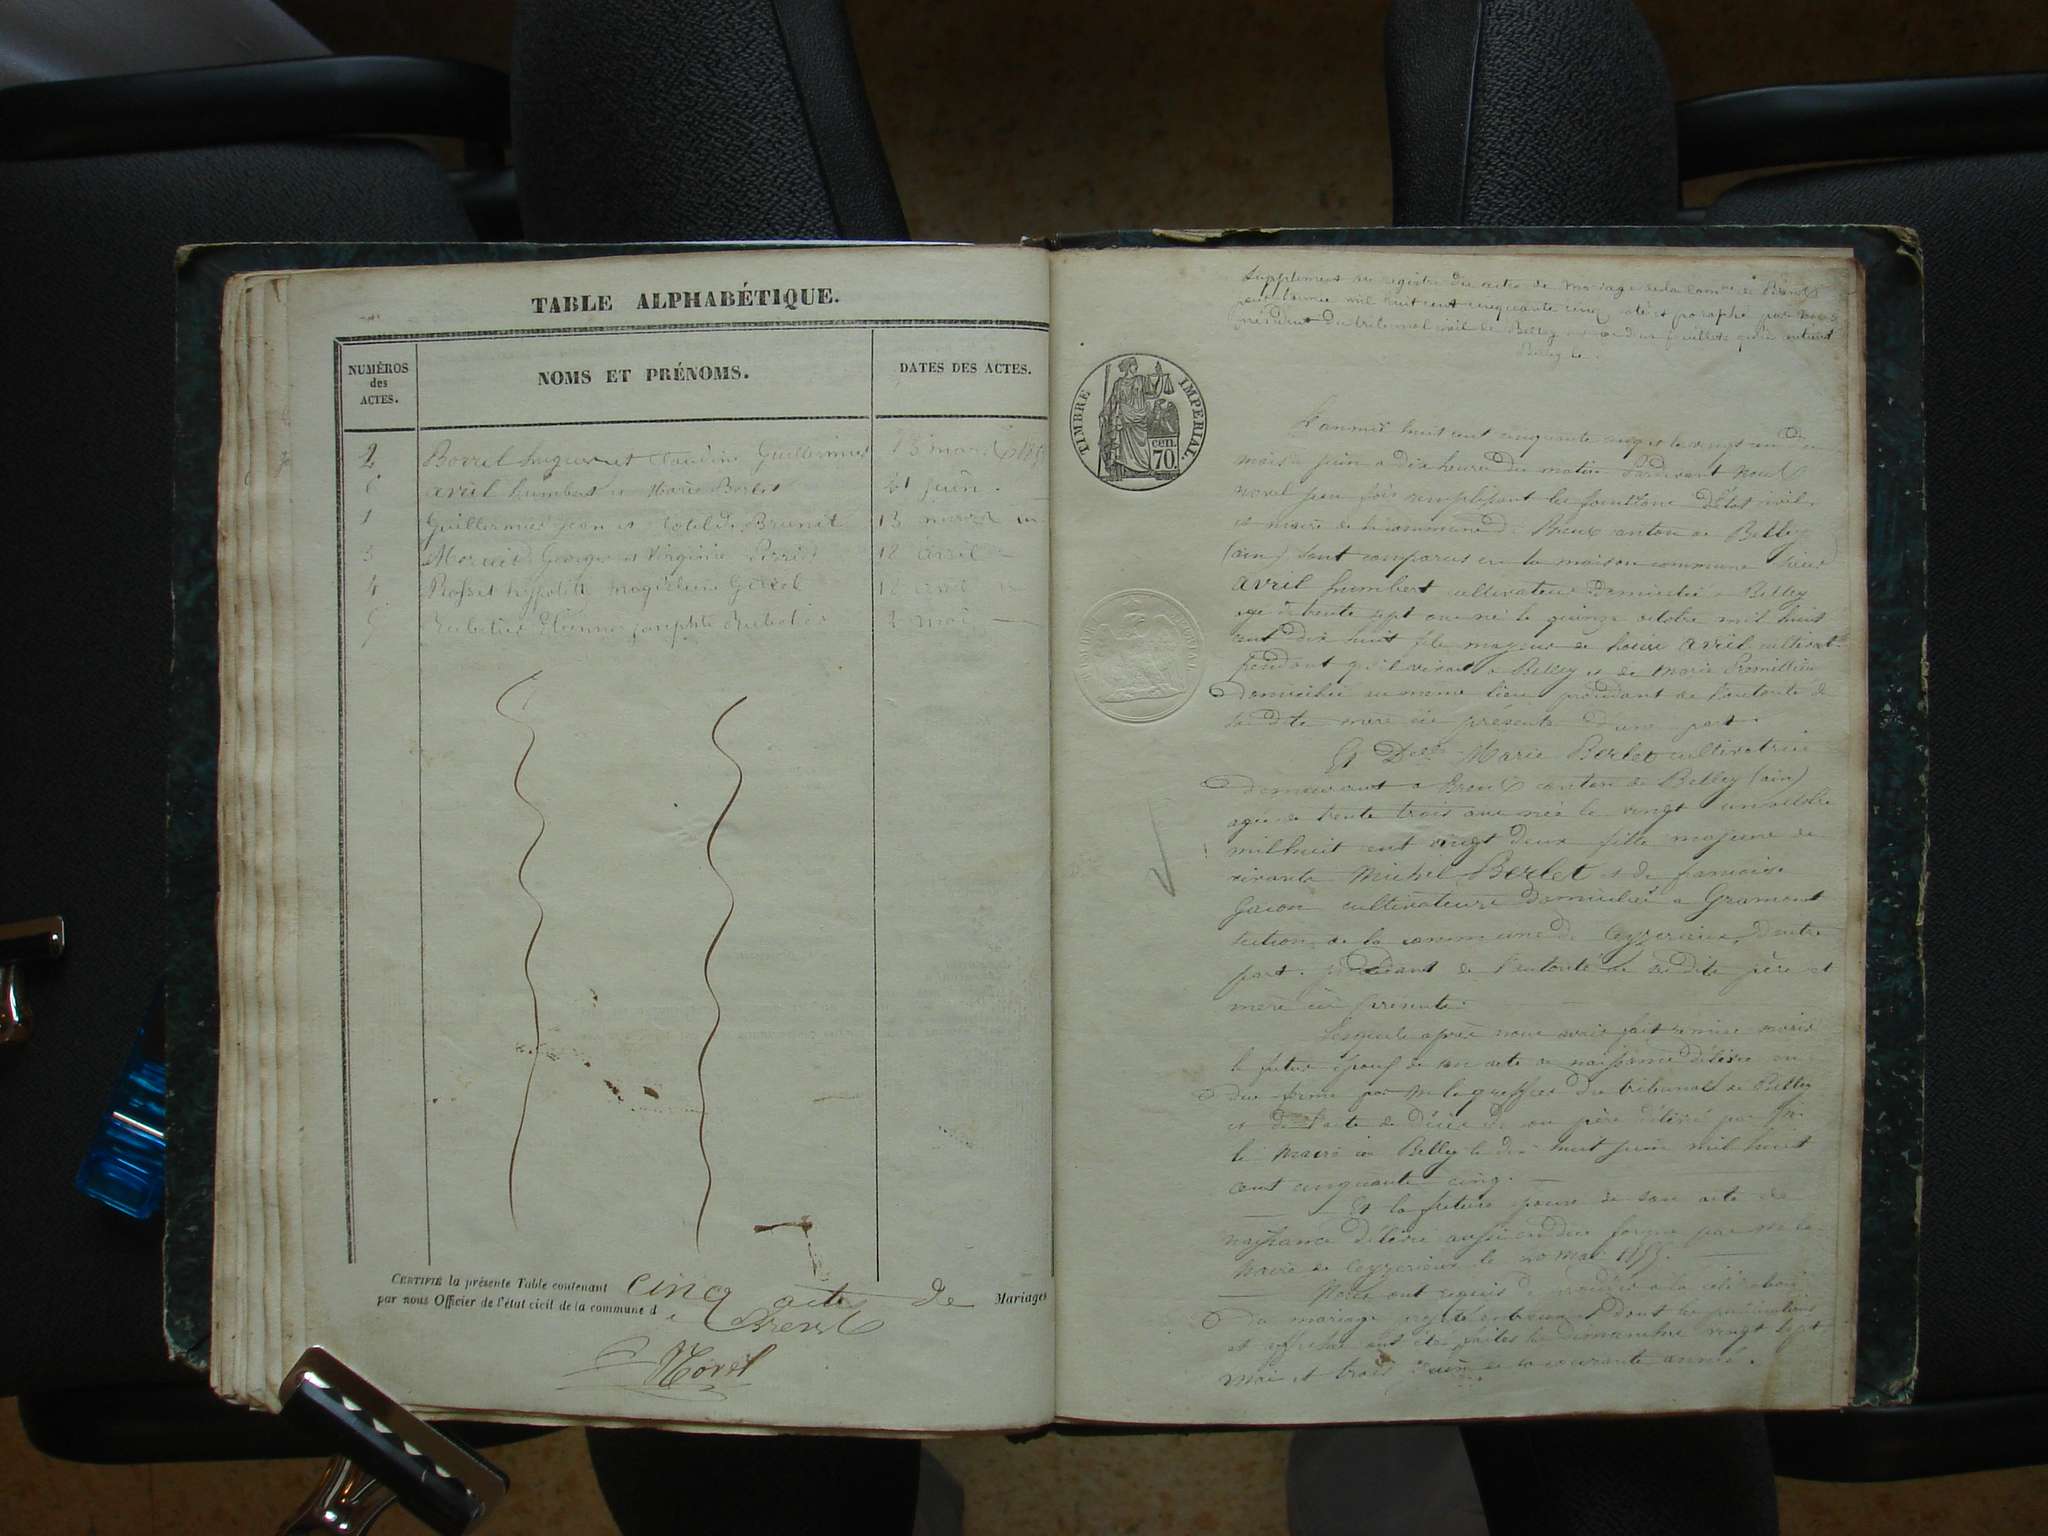 TABLE ALPHABÉTIQUE.
NUMÉROS des ACTES.
NOMS ET PRÉNOMS.
DATES DES ACTES.
2 Borrel hugues et Claudine Guillermier 13 mars
6 avril humbert et Marie Berlet 21 juin
1 Guillermier jean et Brunet 13 mars
3 George et Virginie 12 avril
4 Rosset hypolite Magdeleine
5 Etiennne josephte 2 mai
CERTIFIÉ la présente Table contenant cinq actes de Mariages
par nous Officier de l'état civil de la commune d Brens
Morel
Supplement au registre des actes de Mariage de la Comne de Brens
pour l'année mil huit cent cinquante cinq coté et paraphé par nous
président du tribunal civil de Belley
Belley le
TIMBRE IMPÉRIAL.
70 cen.
L'an mil huit cent cinquante cinq et le vingt un du
mois de juin a dix heures du matin Pardevant Nous
remplissant les fonctions d'état civil
et maire de la commune de Brens canton de Belley
(ain) sont comparus en la maison commune
avril humbert cultivateur domicilié a Belley
agé de trente sept ans né le quinze octobre mil huit
cent dix huit fils majeur de avril cultivat
pendant qu'il vivait a Belley et de Marie
domiciliée au même lieu procédant de l'autorité de
sa dite mere ici présente d'une part.
Et Delle Marie Berlet cultivatrice
demeurant a Brens canton de Belley (ain)
agée de trente trois ans née le vingt un octobre
mil huit cent vingt deux fille majeure de
vivants Michel Berlet et de francoise
cultivateurs domiciliés a Gramont
section de la commune de Ceyzerieux, d'autre
part. procédant de l'autorité de ses dits père et
mere ici présents.
Lesquels après nous avoir fait remise savoir
le futur époux de son acte de naissance délivré en
due forme par M le greffier du tribunal de Belley
et de l'acte de décès de son père délivré par M.
le Maire de Belley le dix huit juin mil huit
cent cinquante cinq.
Et la future épouse de son acte de
naissance délivré aussi en due forme par M le
Maire de Ceyzerieux le 20 mai 1855.
Nous ont requis de procéder a la célébration
du mariage projeté entre eux et dont les publications
et affiches ont été faites les dimanches vingt sept
mai et trois juin de la courante année.